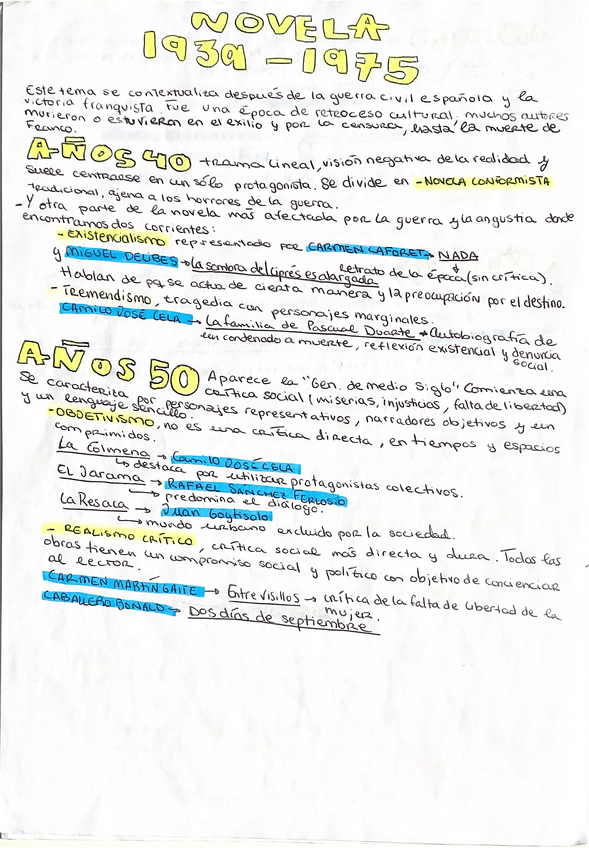 NOVELA
1939 - 1975
Este tema se contextualiza después de la guerra civil española y la
victoria franquista fue una época de retroceso cultural, muchos autores
murieron o estuvieron en el exilio y por la censura, hasta la muerte de
Franco.
AÑOS 40 trama lineal, visión negativa de la realidad y
suele centrarse en un sólo protagonista. Se divide en - NOVELA CONFORMISTA
tradicional, ajena a los horrores de la guerra.
- Y otra parte de la novela más afectada por la guerra y la angustia donde
encontramos dos corrientes:
- Existencialismo representado por CARMEN LAFORET → NADA
y MIGUEL DELIBES → La sombra del ciprés es alargada retrato de la época (sin crítica).
Hablan de pq se actua de cierta manera y la preocupación por el destino.
- Tremendismo, tragedia con personajes marginales.
CAMILO JOSÉ CELA → La familia de Pascual Duarte → Autobiografía de
un condenado a muerte, reflexión existencial y denuncia
social.
AÑOS 50 Aparece la "Gen. de medio Siglo" Comienza una
crítica social (miserias, injusticias, falta de libertad)
Se caracteriza por personajes representativos, narradores objetivos y en
y un lenguaje sencillo.
- OBJETIVISMO, no es una crítica directa, en tiempos y espacios
comprimidos.
La Colmena → Camilo JOSÉ CELA
↳ destaca por utilizar protagonistas colectivos.
EL Jarama → RAFAEL SÁNCHEZ FERLOSIO
↳ predomina el diálogo.
La Resaca → Juan Goytisolo
↳ mundo urbano excluido por la sociedad.
- REALISMO CRÍTICO, crítica social más directa y dura. Todas las
obras tienen un compromiso social y político con objetivo de concienciar
al lector.
CARMEN MARTÍN GAITE → Entre visillos → crítica de la falta de libertad de la
mujer.
CABALLERO BONALD → Dos días de septiembre